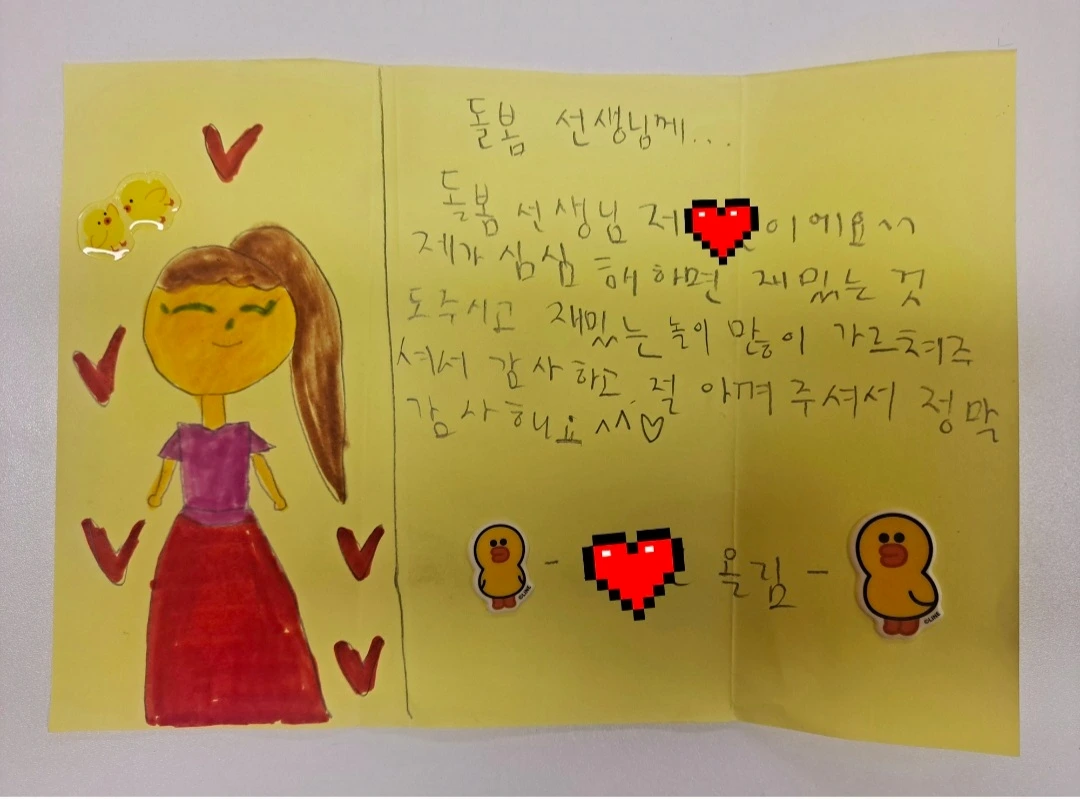 돌봄 선생님께...
돌봄 선생님 저 이에요^^
제가 심심해 하면 재밌는 것
도 주시고 재밌는 놀이 많이 가르쳐주
셔서 감사하고 절 아껴 주셔서 정막
감사해요^^♡
- 올림 -
©LINE
©LINE